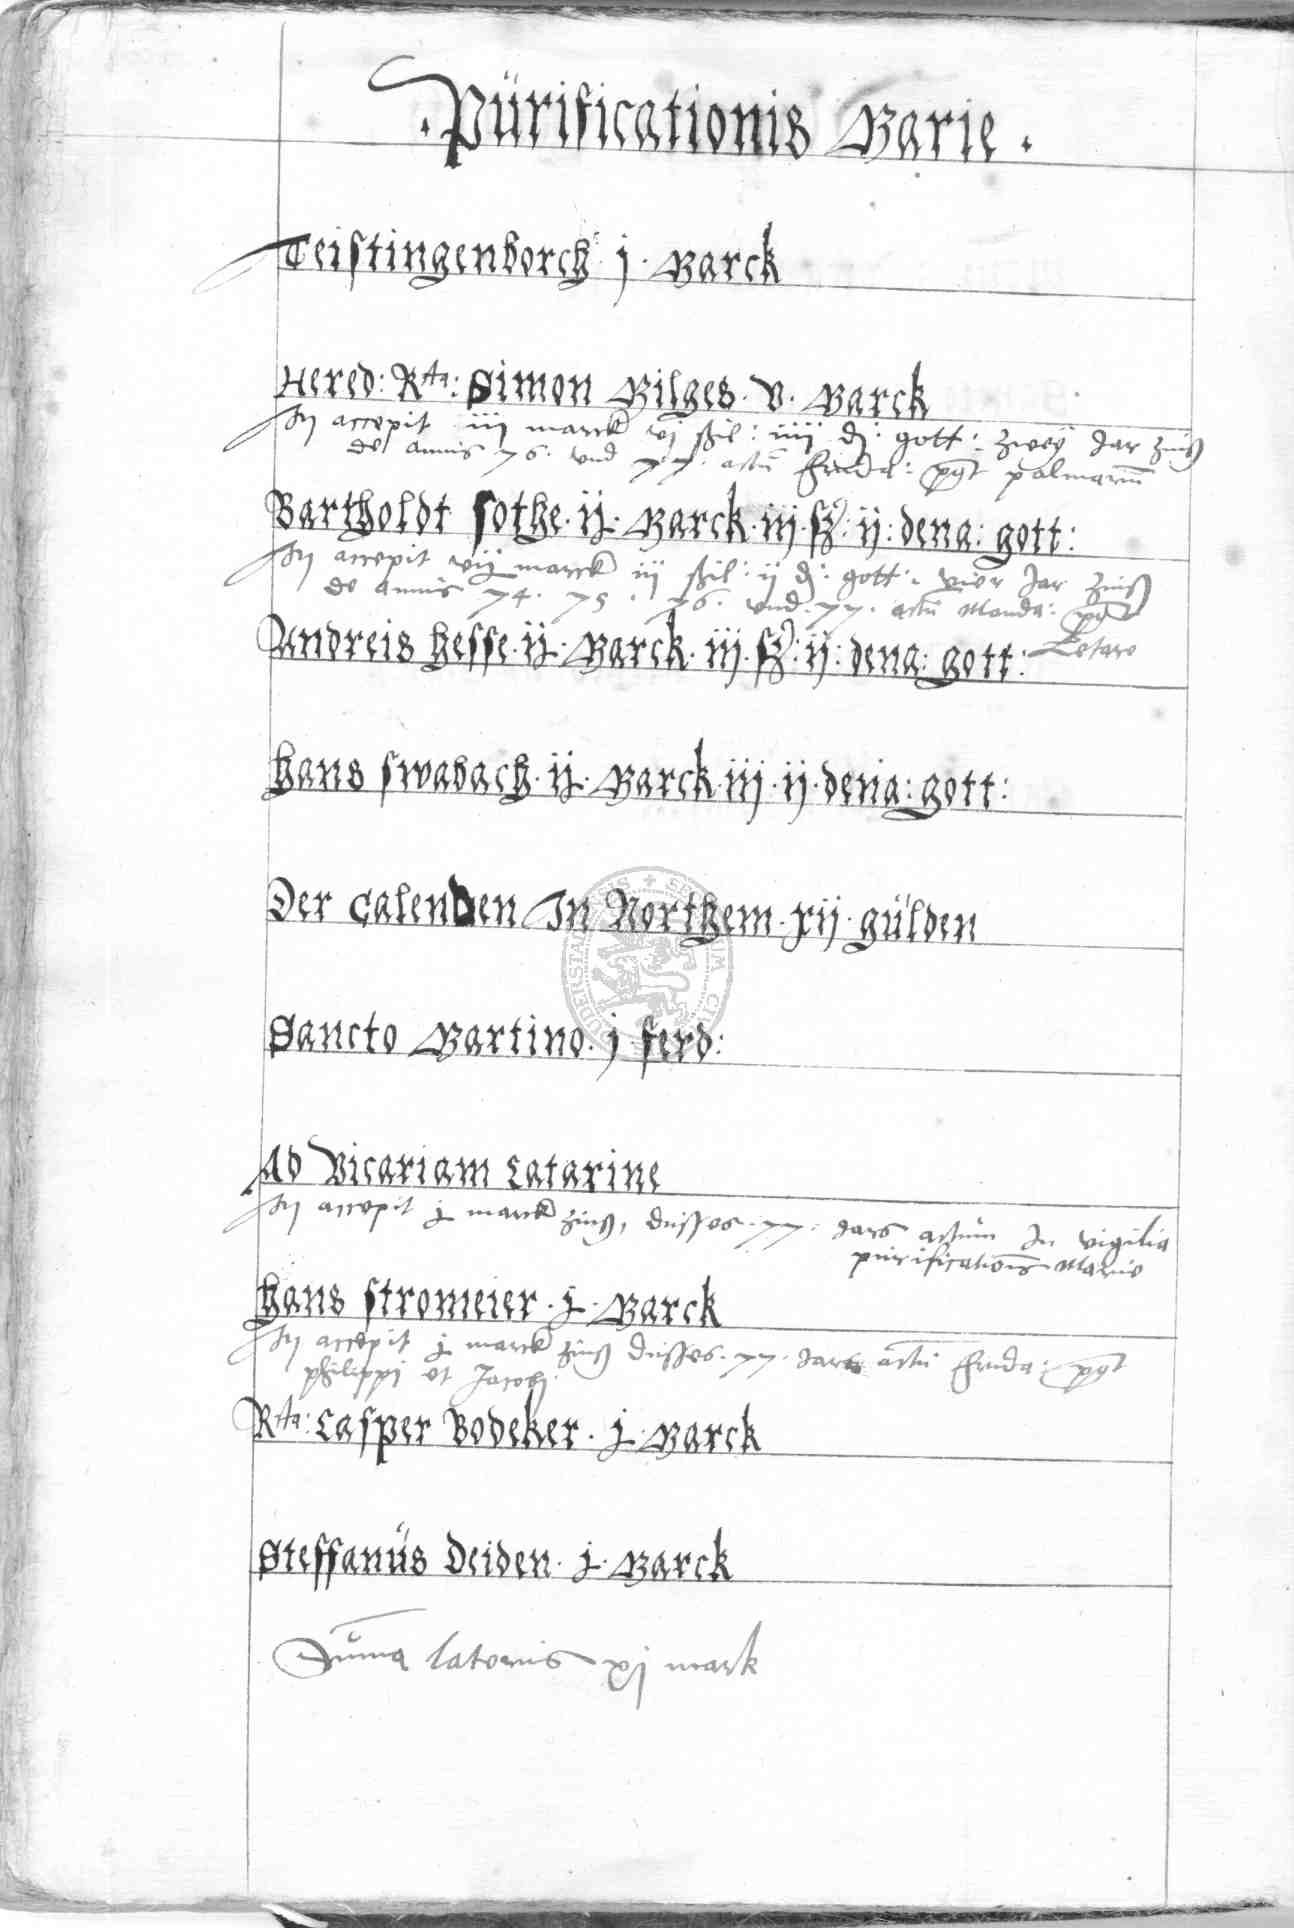 . Pürificationis Marie .
Teistingenborch · j · Marck
Hered: Rta: Simon Hilges · v · Marck
Hij accepit iij marck vj ßil: iiij d: gott: zwey Jar zinß
de annis 76 · vnd 77 · actu frida: post palmarum
Bartholdt Sothe · ij · Marck · iij · ß: ij: dena: gott:
Hij accepit vij marck iij ßil: ij d: gott: vier Jar zinß
de annis 74 · 75 · 76 · vnd · 77 · actu Monda: post
Letare
Andreis Hesse · ij · Marck · iij · ß: ij: dena: gott:
Hans Swabach · ij · Marck · iij · ij · dena: gott:
Der Calenden In Northem · xij · gülden
Sancto Martino · j ferd:
Ad Vicariam Catarine
Hij accepit j marck zinß, dusses · 77 · Jars actum In vigilia
purificationis Marie
Hans Stromeier · j · Marck
Hij accepit j marck zinß dusses · 77 · Jars actu frida: post
philippi et Jacobi
Rta: Casper Bodeker · j · Marck
Steffanüs Deiden · j · Marck
Suma lateris xj mark